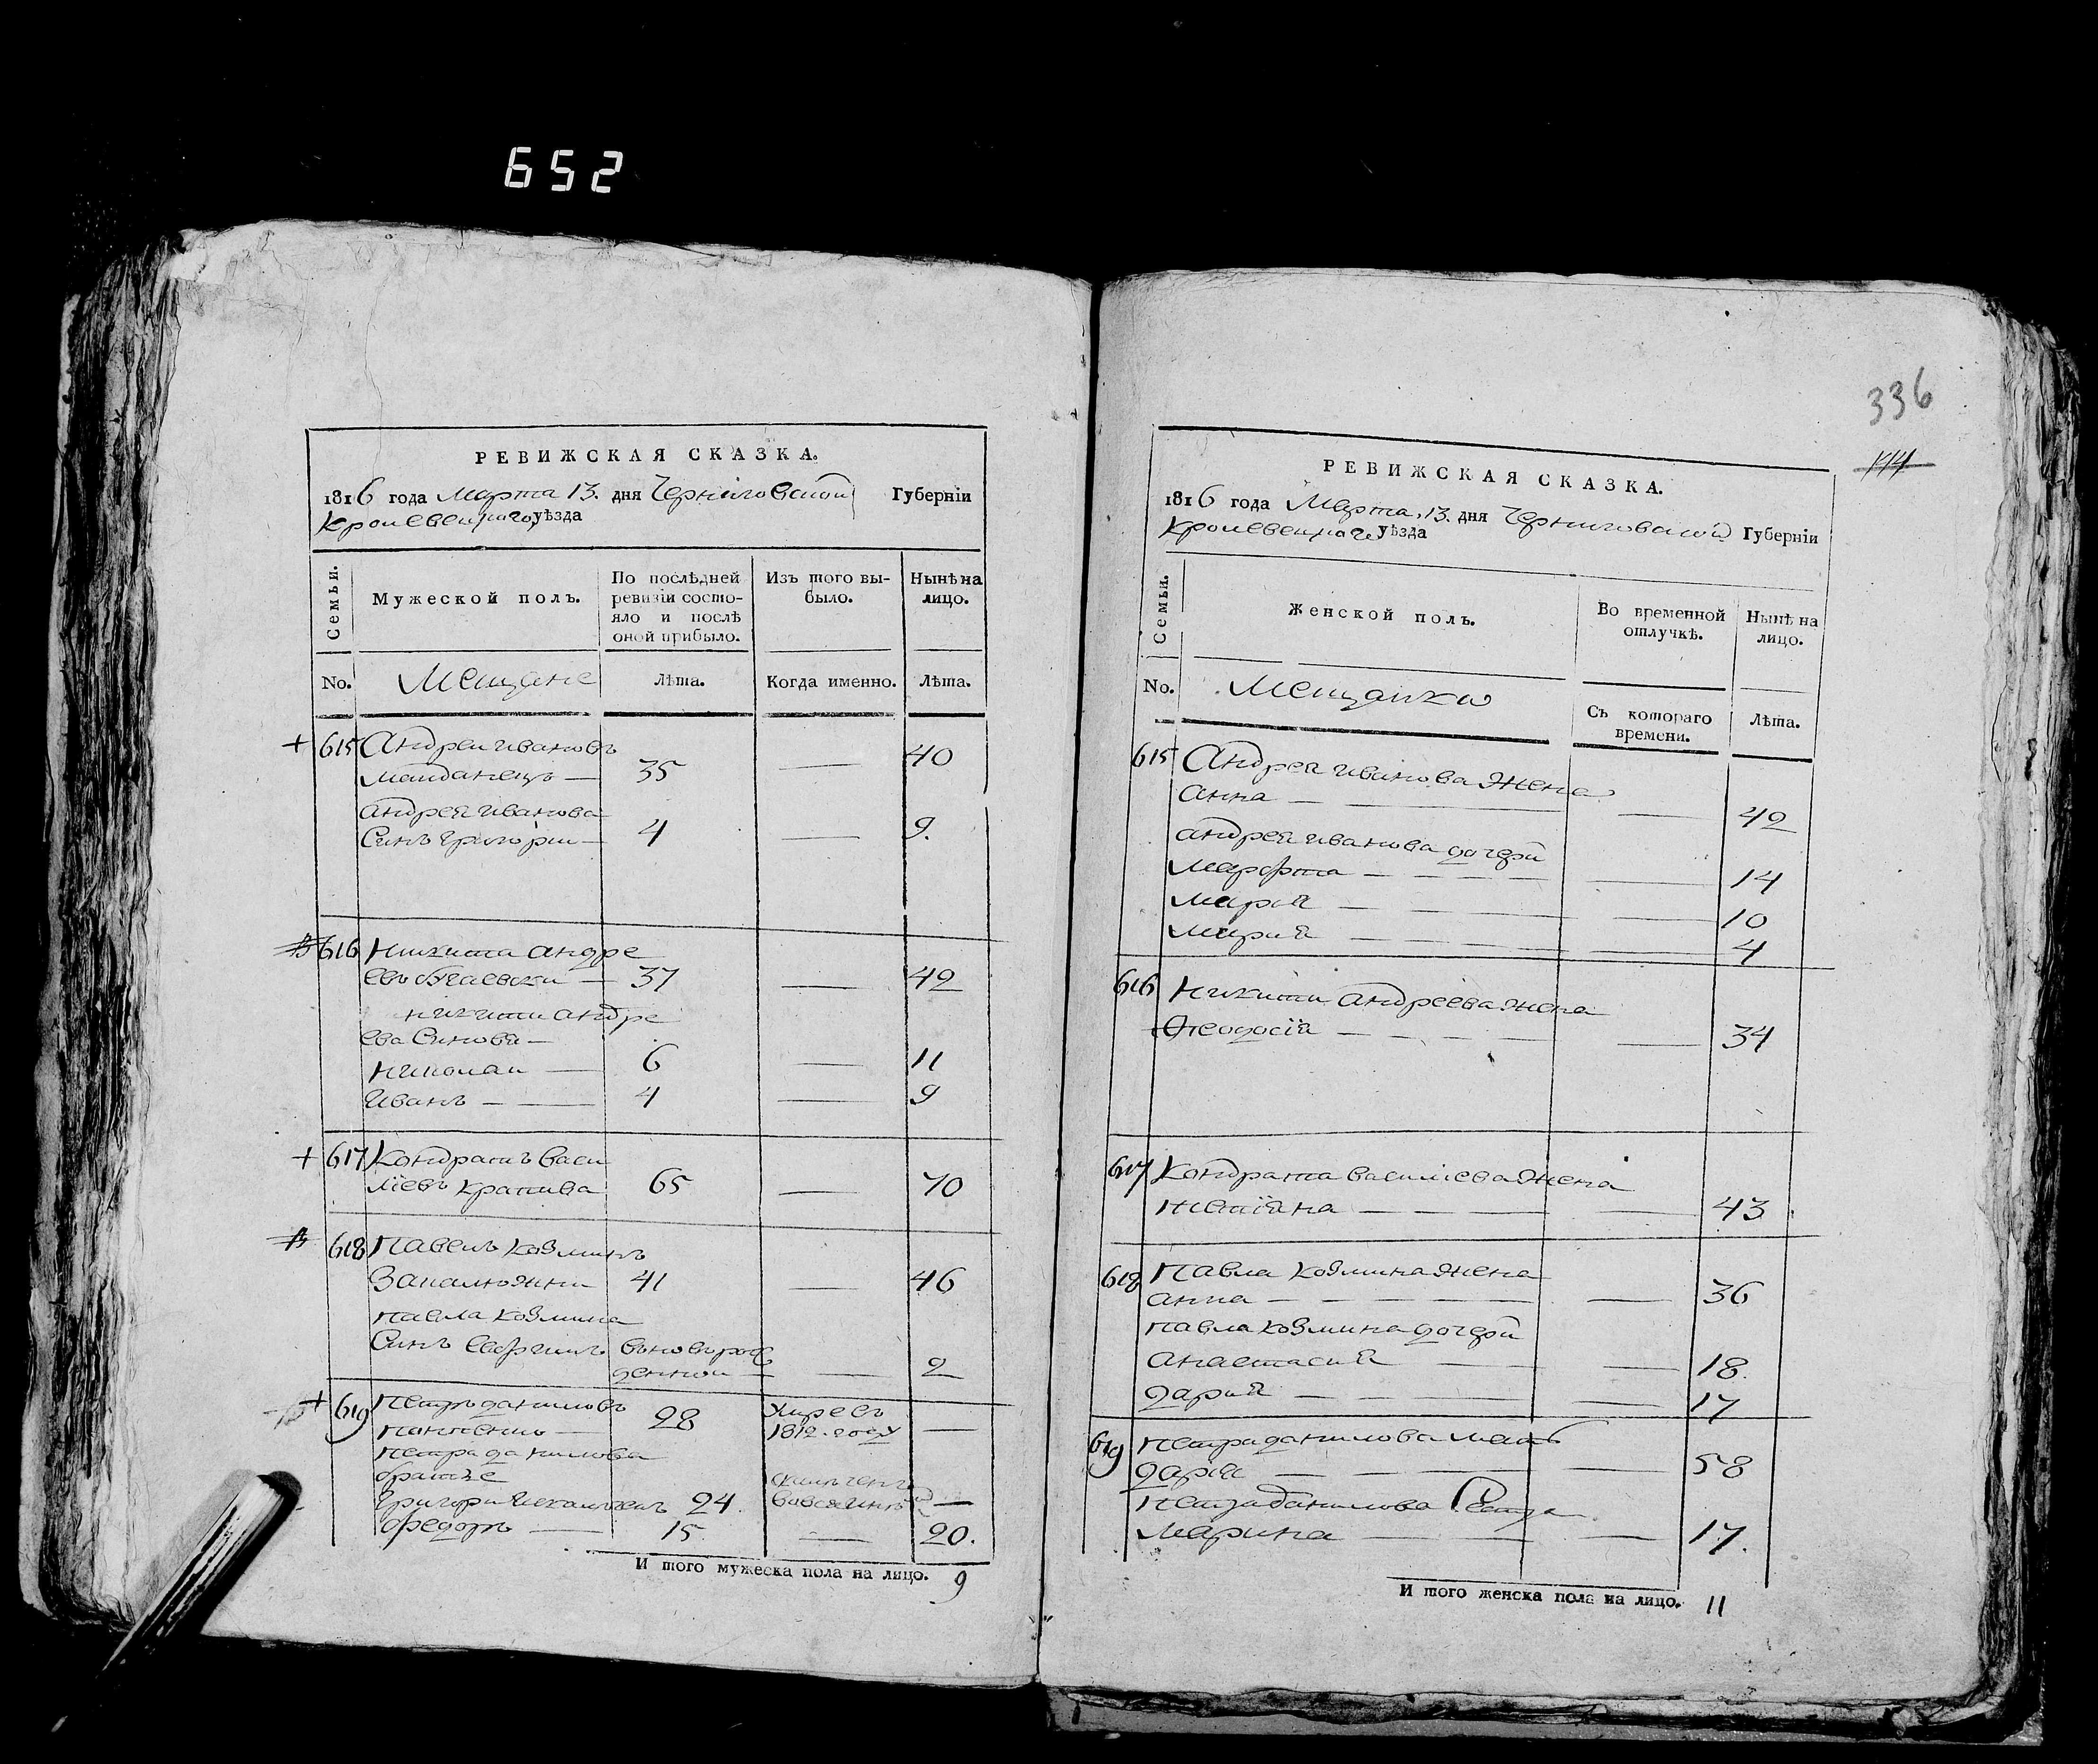 652
РЕВИЖСКАЯ СКАЗКА.
1816 года Марта 13. дня Черниговской Губерніи
Кролевецкаго уѣзда
Семьи.
Мужеской полъ.
По послѣдней
ревизіи состо-
яло и послѣ
оной прибыло.
Изъ того вы-
было.
Нынѣ на
лицо.
No.
Мещане
Лѣта.
Когда именно.
Лѣта.
+ 615 Андреи Ивановъ
Майданецъ — 35 — 40
Андрея Иванова
Синъ Григории — 4 — 9.
616 Никита Андре
евъ — 37 — 42
Никити Андре
ева Синовя —
Николаи — 6 — 11
Иванъ — 4 — 9
+ 617 Кондратъ Васи
лїевъ Крапива 65 — 70
618 Павелъ Козминъ
41 — 46
Павла Козмина
Синъ вновьрож
денной — 2
+ 619 Петръ Даниловъ
28 Умре въ
1812. году —
Петра Данилова
братье
Григори 24. —
Федоръ — 15 — 20.
И того мужеска пола на лицо. 9
336
РЕВИЖСКАЯ СКАЗКА.
1816 года Марта, 13. дня Черниговской Губерніи
Кролевецкаго уѣзда
Семьи.
Женской полъ.
Во временной
отлучкѣ.
Нынѣ на
лицо.
No.
Мещанки
Съ котораго
времени.
Лѣта.
615 Андрея Иванова Жена
Анна — — 42
Андрея Иванова дочери
Марфта — — 14
Мария — — 10
Мария — — 4
616 Никити Андреева Жена
Феодосїя — — 34
617 Кондрата Василїева Жена
— — 43
618 Павла Козмина Жена
Анна — — 36
Павла Козмина дочери
Анастасия — — 18.
Дария — — 17
619 Петра Данилова Мать
Дарїя — — 58
Петра Данилова Сестра
Марина — — 17.
И того женска пола на лицо. 11